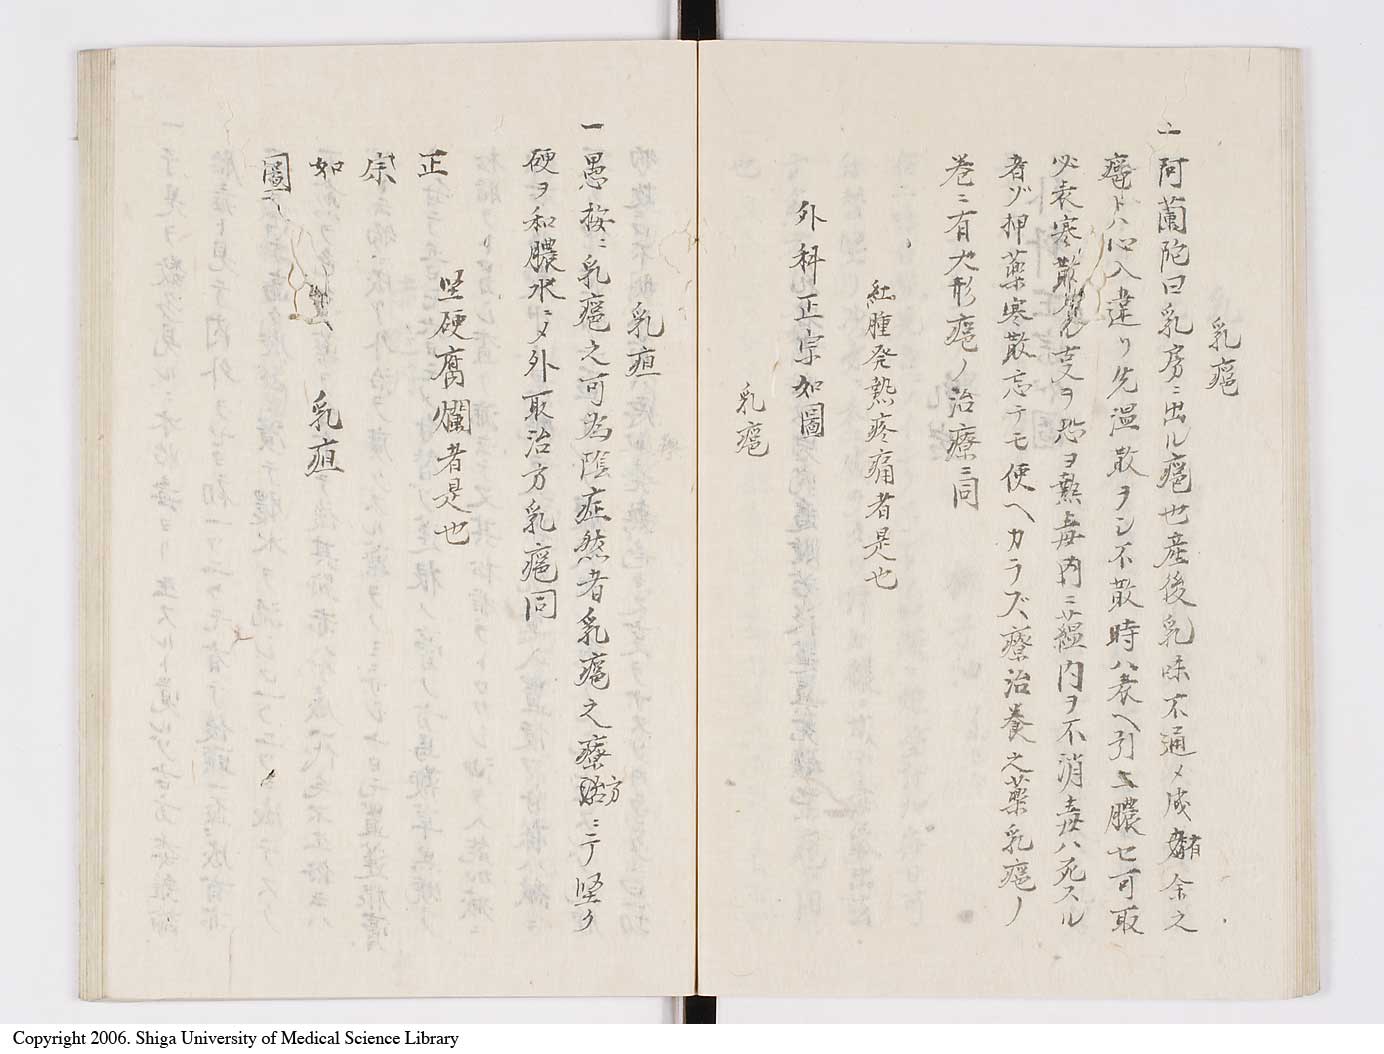 乳癰
一 阿蘭陀曰乳房ニ出ル癰也産後乳味不通〆成有余之
癰トハ心入違リ先温散ヲシ不散時ハ表ヘ引上膿セ可取
必表寒散覚支ヲ恐ヲ熱毒内ニ蘊内ヲ不消毒ハ死スル
者ゾ押薬寒散忘テモ使ヘカラズ療治養之薬乳癰ノ
巻ニ有犬形癰ノ治療ニ同
紅腫発熱疼痛者是也
外科正宗如圖
乳癰
乳疽
一 愚按ニ乳癰之可為陰症然者乳癰之療方ニテ堅ク
硬ヲ和膿水ニ〆外取治方乳癰同
堅硬腐爛者是也
正
宗
如
圖
乳疽
Copyright 2006. Shiga University of Medical Science Library